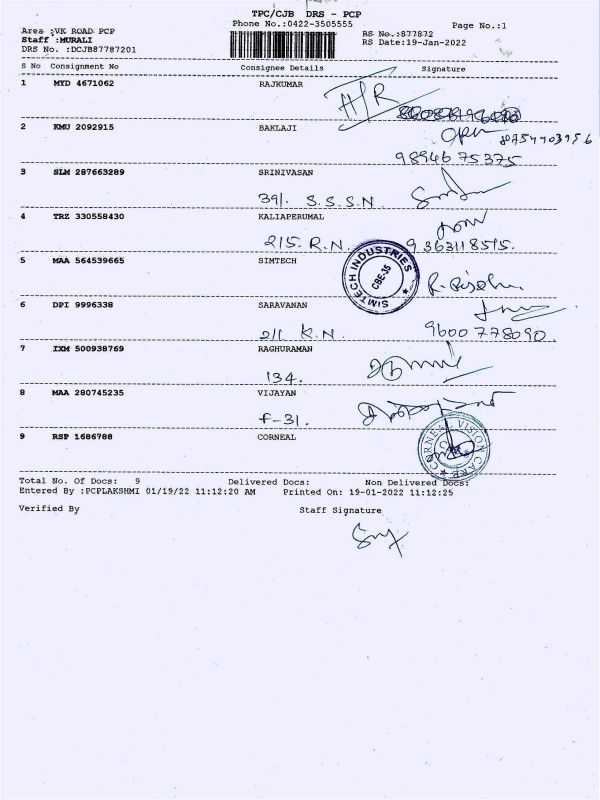 TPC/CJB DRS - PCP
Phone No.:0422-3505555 Page No.:1
Area :VK ROAD PCP RS No.:877872
Staff :MURALI RS Date:19-Jan-2022
DRS No. :DCJB87787201
S No Consignment No Consignee Details Signature
1 MYD 4671062 RAJKUMAR
2 KMU 2092915 BAKLAJI
8754403956
9894675375
3 SLM 287663289 SRINIVASAN
39/. S.S.S.N.
4 TRZ 330558430 KALIAPERUMAL
215. R.N. 9363118515.
5 MAA 564539665 SIMTECH
SIMTECH INDUSTRIES
CBE-35
6 DPI 9996338 SARAVANAN
211 K.N. 9600778090.
7 IXM 500938769 RAGHURAMAN
134.
8 MAA 280745235 VIJAYAN
F-31.
9 RSP 1686788 CORNEAL
CORNEAL VISION CARE
Total No. Of Docs: 9 Delivered Docs: Non Delivered Docs:
Entered By :PCPLAKSHMI 01/19/22 11:12:20 AM Printed On: 19-01-2022 11:12:25
Verified By Staff Signature